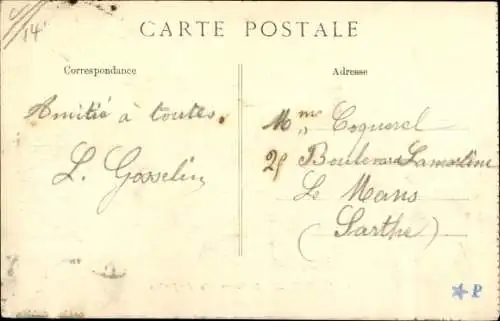 14
CARTE POSTALE
Correspondance
Adresse
Amitié à toutes.
L. Gosselin
Mme Coquerel
25 Boulevard Lamartine
Le Mans
(Sarthe)
P